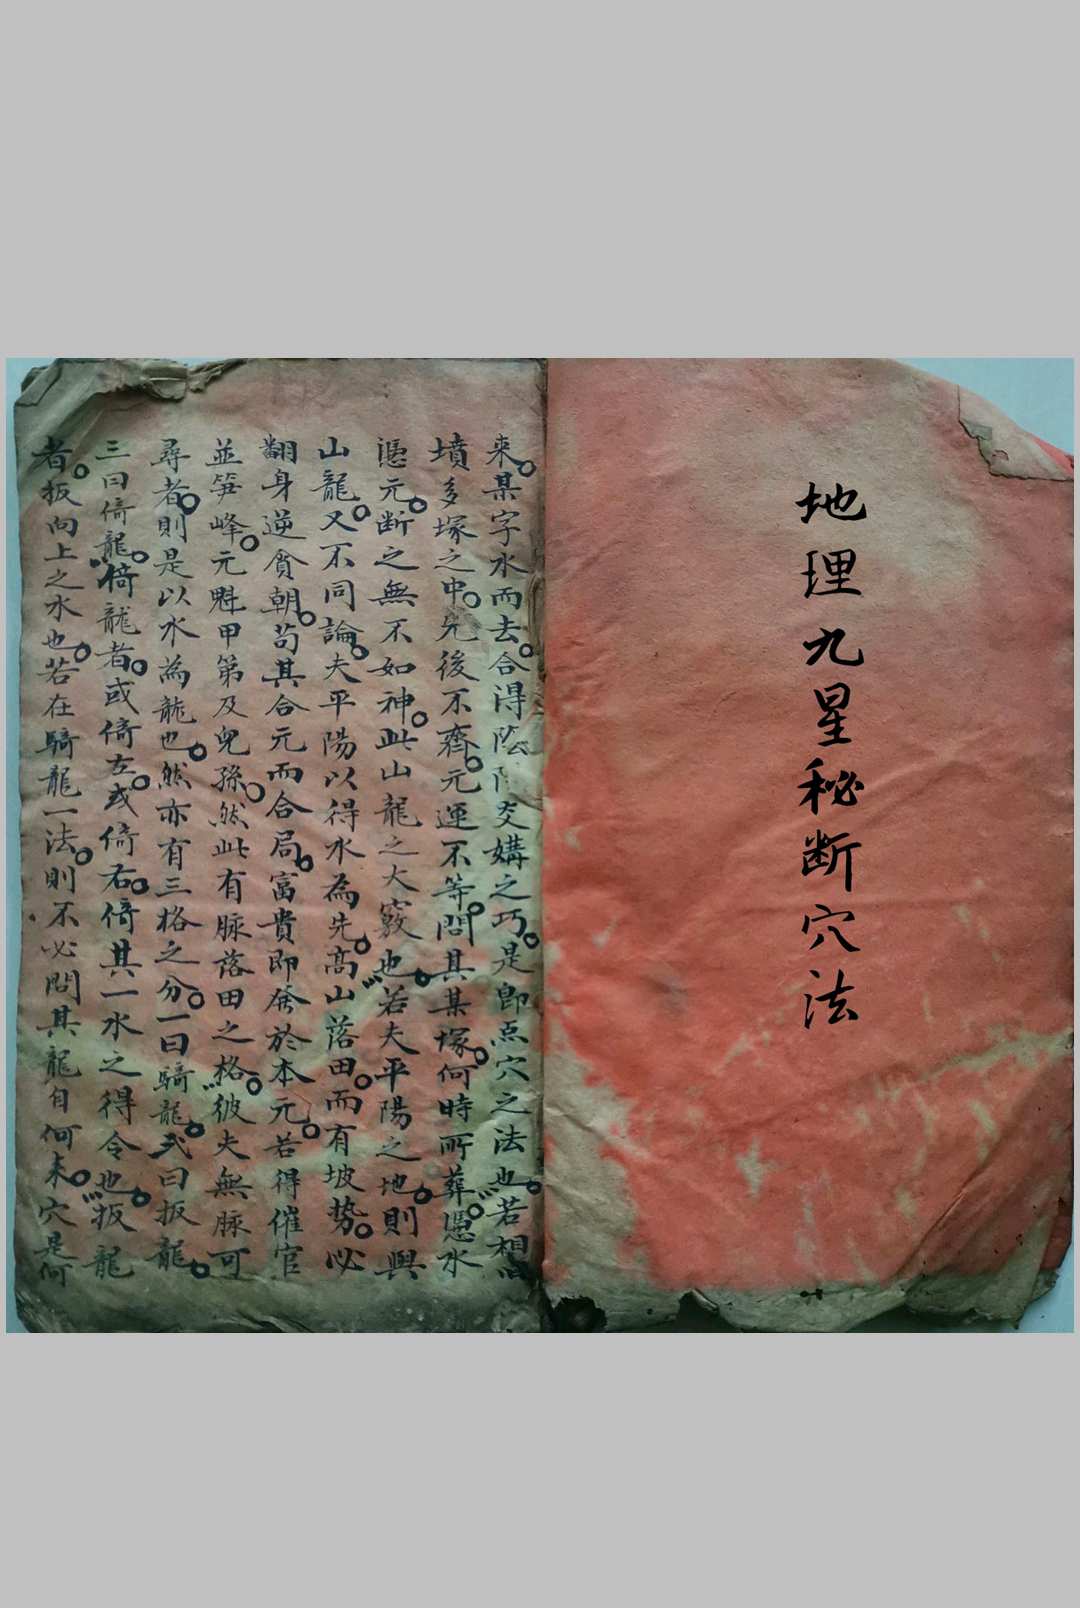 地理九星秘断穴法
来。某字水而去。合得陰交媾之巧。是即点穴之法也。若相
墳多塚之中。先後不齊。元運不等。問其某塚。何時所葬。憑水
憑元。断之無不如神。此山龍之大竅也。若夫平陽之地。則與
山龍。又不同論。夫平陽以得水為先。高山落田。而有坡势。必
翻身逆貪朝。苟其合元而合局。富貴即發於本元。若得催官
並笋峰。元魁甲第及兒孫。然此有脉落田之格。彼夫無脉可
尋者。則是以水為龍也。然亦有三格之分。一曰騎龍。弍曰扳龍。
三曰倚龍。倚龍者。或倚左。或倚右。倚其一水之得令也。扳龍
者。扳向上之水也。若在騎龍一法。則不必問其龍自何来。穴是何